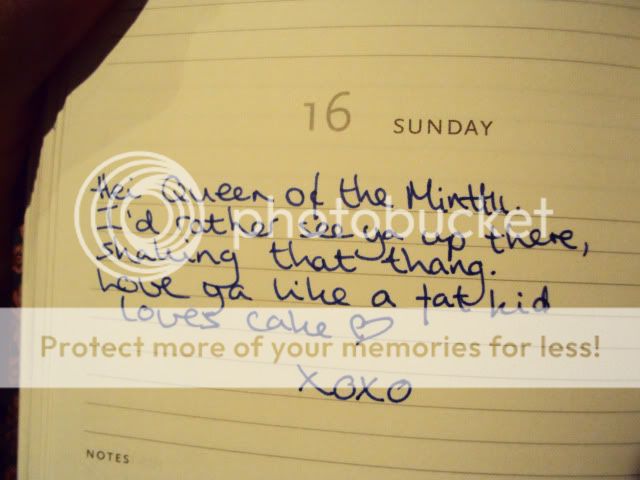 16 SUNDAY
Hei Queen of the Minttu.
I'd rather see ya up there,
shaking that thang.
Love ya like a fat kid
loves cake ♡
xoxo
NOTES
photobucket
Protect more of your memories for less!